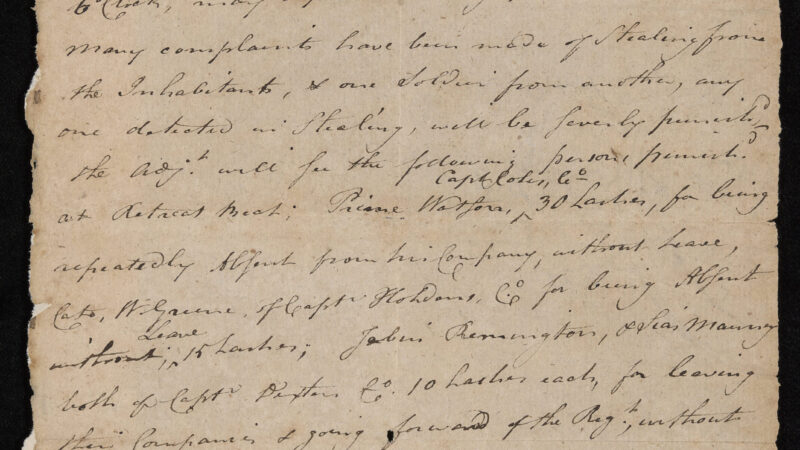 6 oClock, may
Many complaints have been made of Stealing from
the Inhabitants, & one Soldier from another, any
one detected in Stealing, will be severly punish^d,
the Adj^t will see the following persons punish^d
Capt Coles, C^o
at Retreat Beat; Prince Watson, ‸30 Lashes, for being
repeatedly Absent from his Company, without Leave,
Cato, W Greene, of Capt^n Holdens, C^o for being Absent
Leave
without; ‸15 Lashes; Jabin Remington, & Sias Mawney
both of Capt^n Dexters C^o 10 Lashes each, for leaving
their Companies & going forward of the Reg^t, without